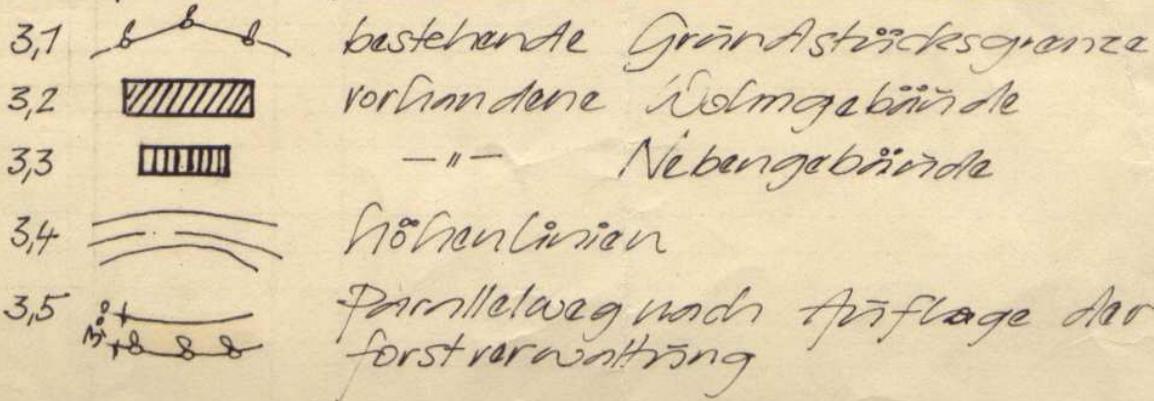 3,1 bestehende Grundstücksgrenze
3,2 vorhandene Wohngebäude
3,3 —"— Nebengebäude
3,4 Höhenlinien
3,5 3,00 Parallelweg nach Auflage der
Forstverwaltung